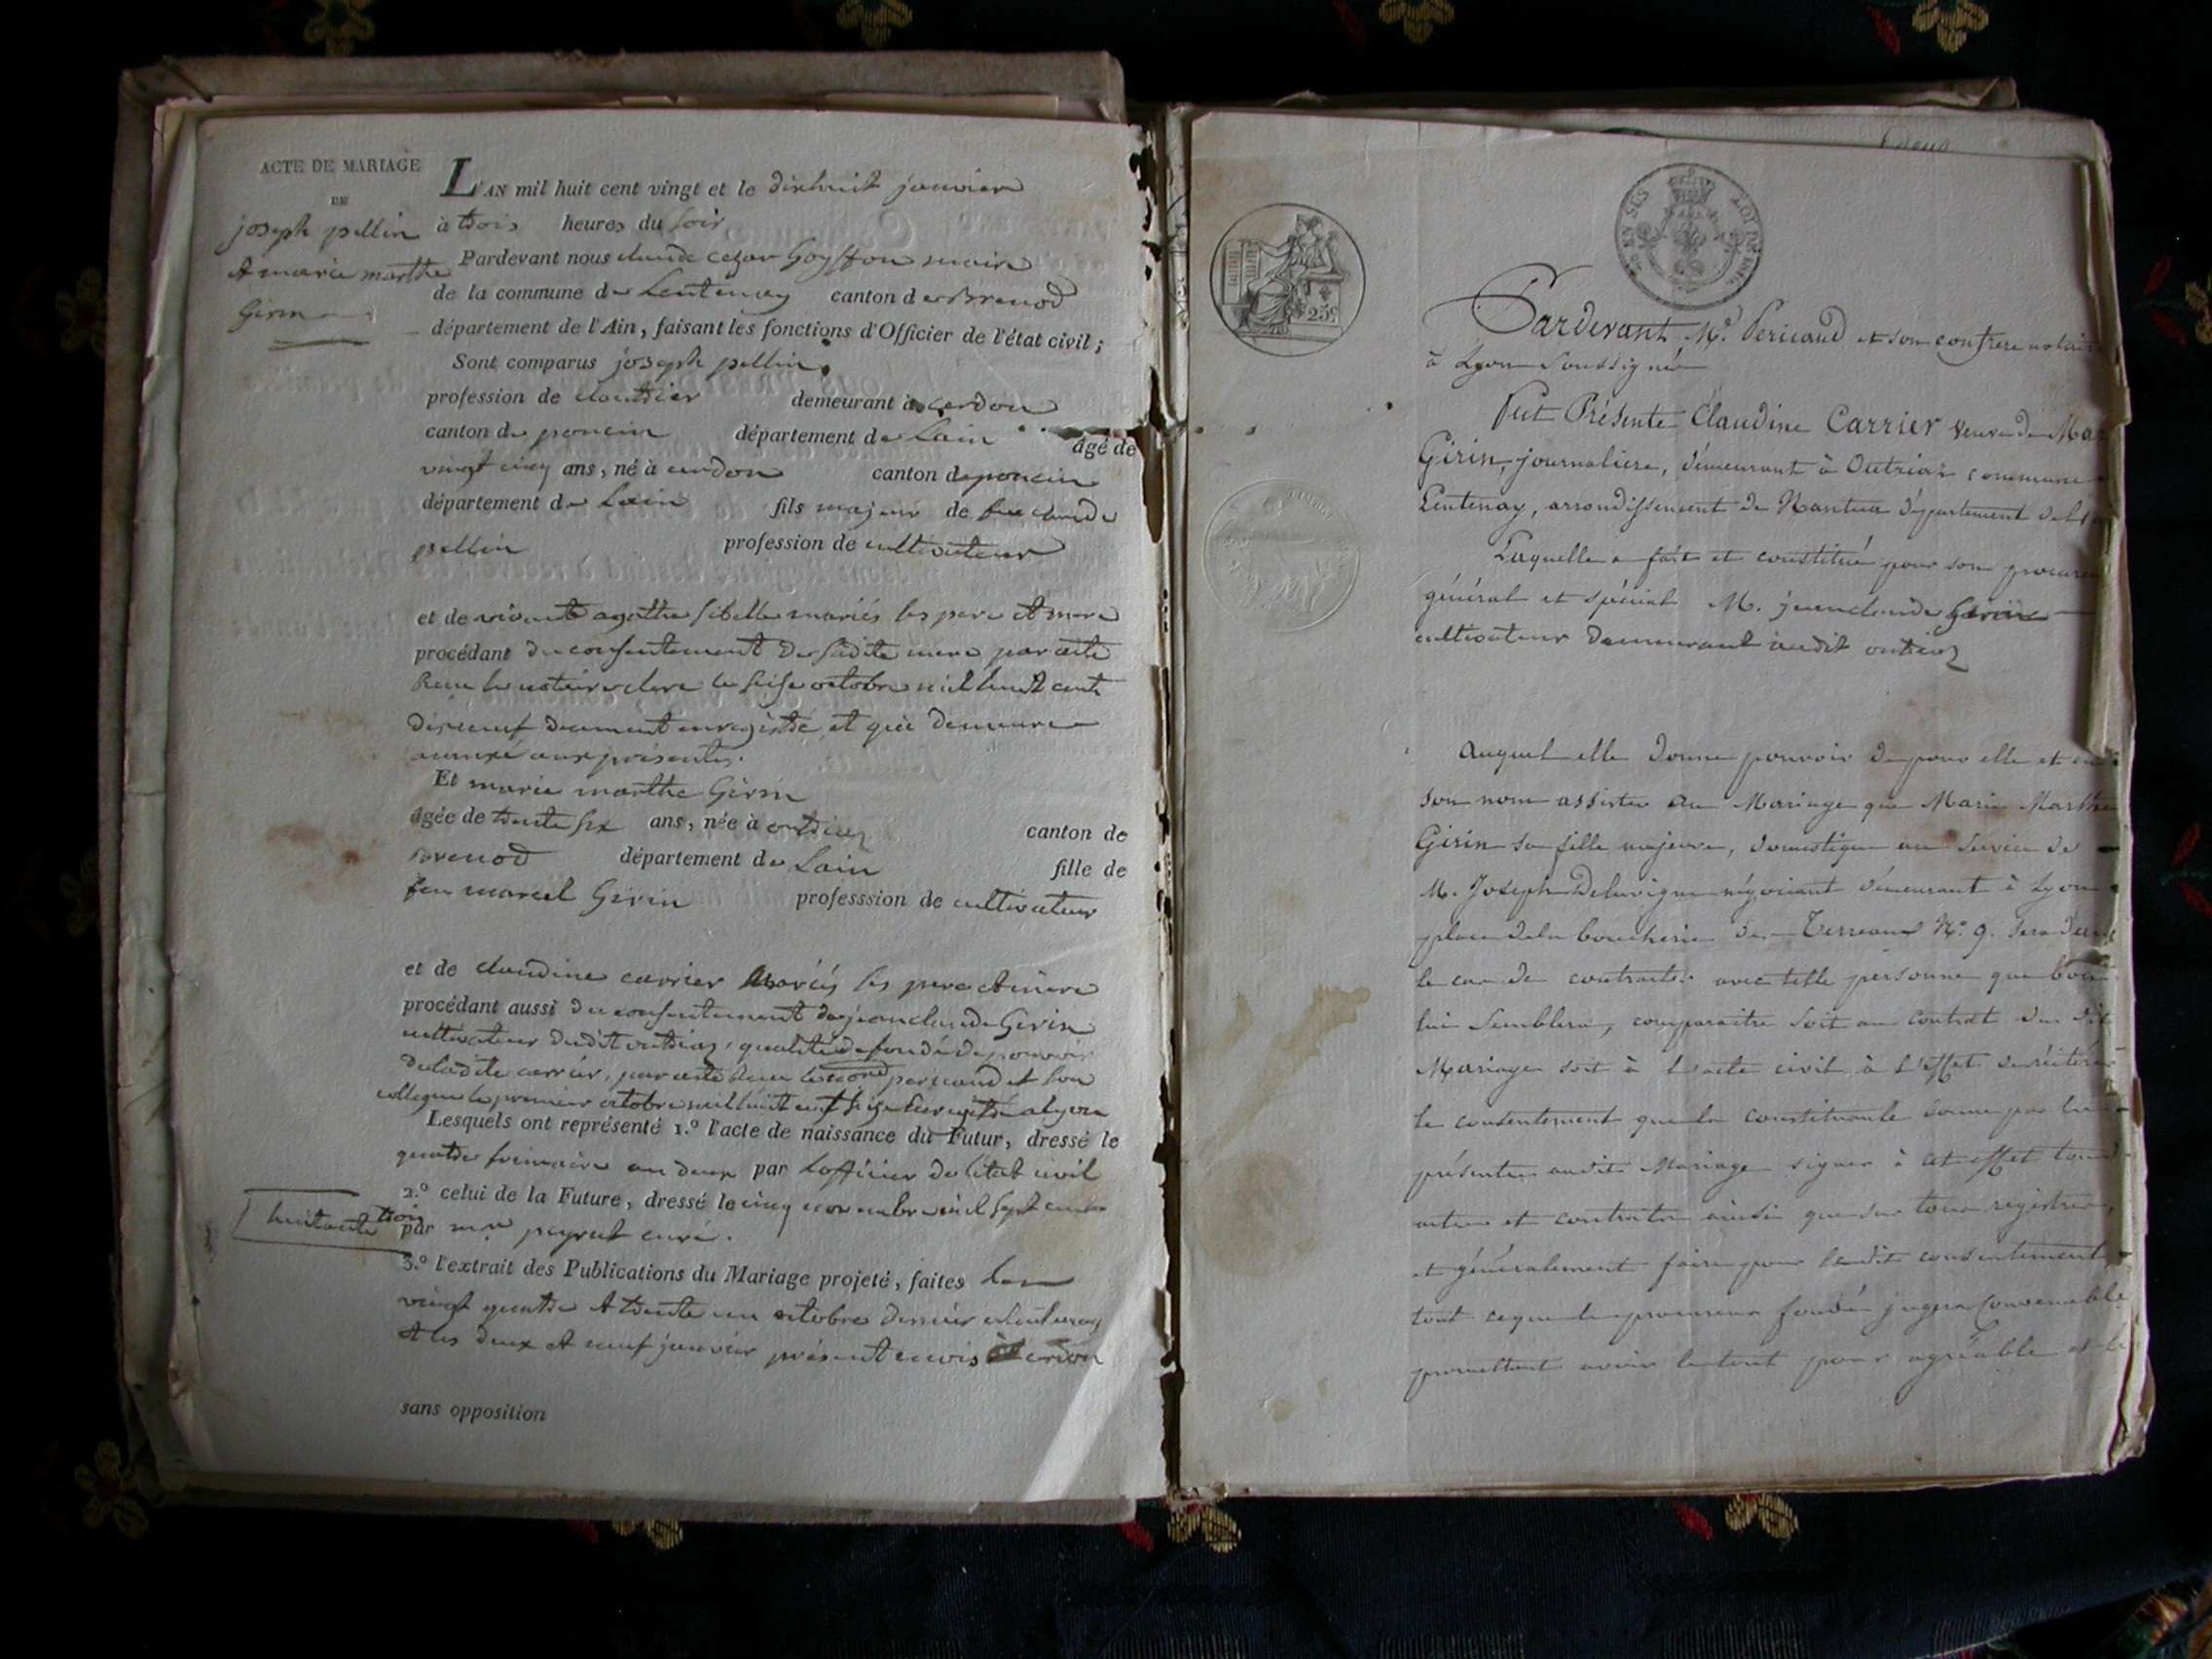 ACTE DE MARIAGE
DE
joseph pellin
et marie marthe
Girin
L'AN mil huit cent vingt et le dixhuit janvier
à trois heures du soir
Pardevant nous claude cezar Goyffon maire
de la commune de Lentenay canton de Brenod
département de l'Ain, faisant les fonctions d'Officier de l'état civil;
Sont comparus joseph pellin
profession de cloutier demeurant à cerdon
canton de poncin département de Lain âgé de
vingt cinq ans, né à cerdon canton de poncin
département de Lain fils majeur de feu claude
pellin profession de cultivateur
et de vivante agathe sibelle mariés ses pere et mere
procédant du consentement de sadite mere par acte
Recu le notaire clerc le seise octobre mil huit cent
dixneuf duement enregistré et qui demeure
annexé aux présentes.
Et marie marthe Girin
âgée de trente six ans, née à outriaz canton de
Brenod département de Lain fille de
feu marcel Girin professsion de cultivateur
et de claudine carrier Mariés ses pere et mere
procédant aussi du consentement de jean claude Girin
cultivateur dudit outriaz, qualité de fondé de pouvoir
de ladite carrier, par acte Recu pericaud et son
collegue le premier octobre mil huit cent seize Enregistré a lyon
Lesquels ont représenté 1.º l'acte de naissance du Futur, dressé le
quatre frimaire an deux par Lofficier de létat civil
2.º celui de la Future, dressé le cinq novembre mil sept cent
huitante trois
par mre peyrut curé.
3.º l'extrait des Publications du Mariage projeté, faites Les
vingt quatre et trente un octobre dernier a lentenay
et les deux et neuf janvier présent mois à cerdon
sans opposition
EN SUS
LOI DE 1816
25c
Pardevant Me. Pericaud et son confrere notaires
à Lyon Soussignés
Fut Présente Claudine Carrier veuve de Mar
Girin, journaliere, demeurant à Outriaz commune
Lentenay, arrondissement de Nantua département de l'
Laquelle a fait et constitué pour son procureur
général et spécial M. jean claude Girin
cultivateur demeurant audit outriaz
Auquel elle donne pouvoir de pour elle et en
son nom assister au Mariage que Marie Marthe
Girin sa fille majeure, domestique au service de
M. Joseph Delavigne négociant demeurant à Lyon
place de la boucherie des Terreaux No. 9. sera dans
le cas de contracter avec telle personne que bon
lui semblera, comparaitre soit au contrat du dit
Mariage soit à l'acte civil à l'effet de réitérer
le consentement que la constituante donne par les
présentes audit Mariage signer à cet effet tous
actes et contrats ainsi que sur tous registres,
et généralement faire pour ledit consentement
tout ce que le procureur fondé jugera Convenable
promettant avoir le tout pour agréable et le